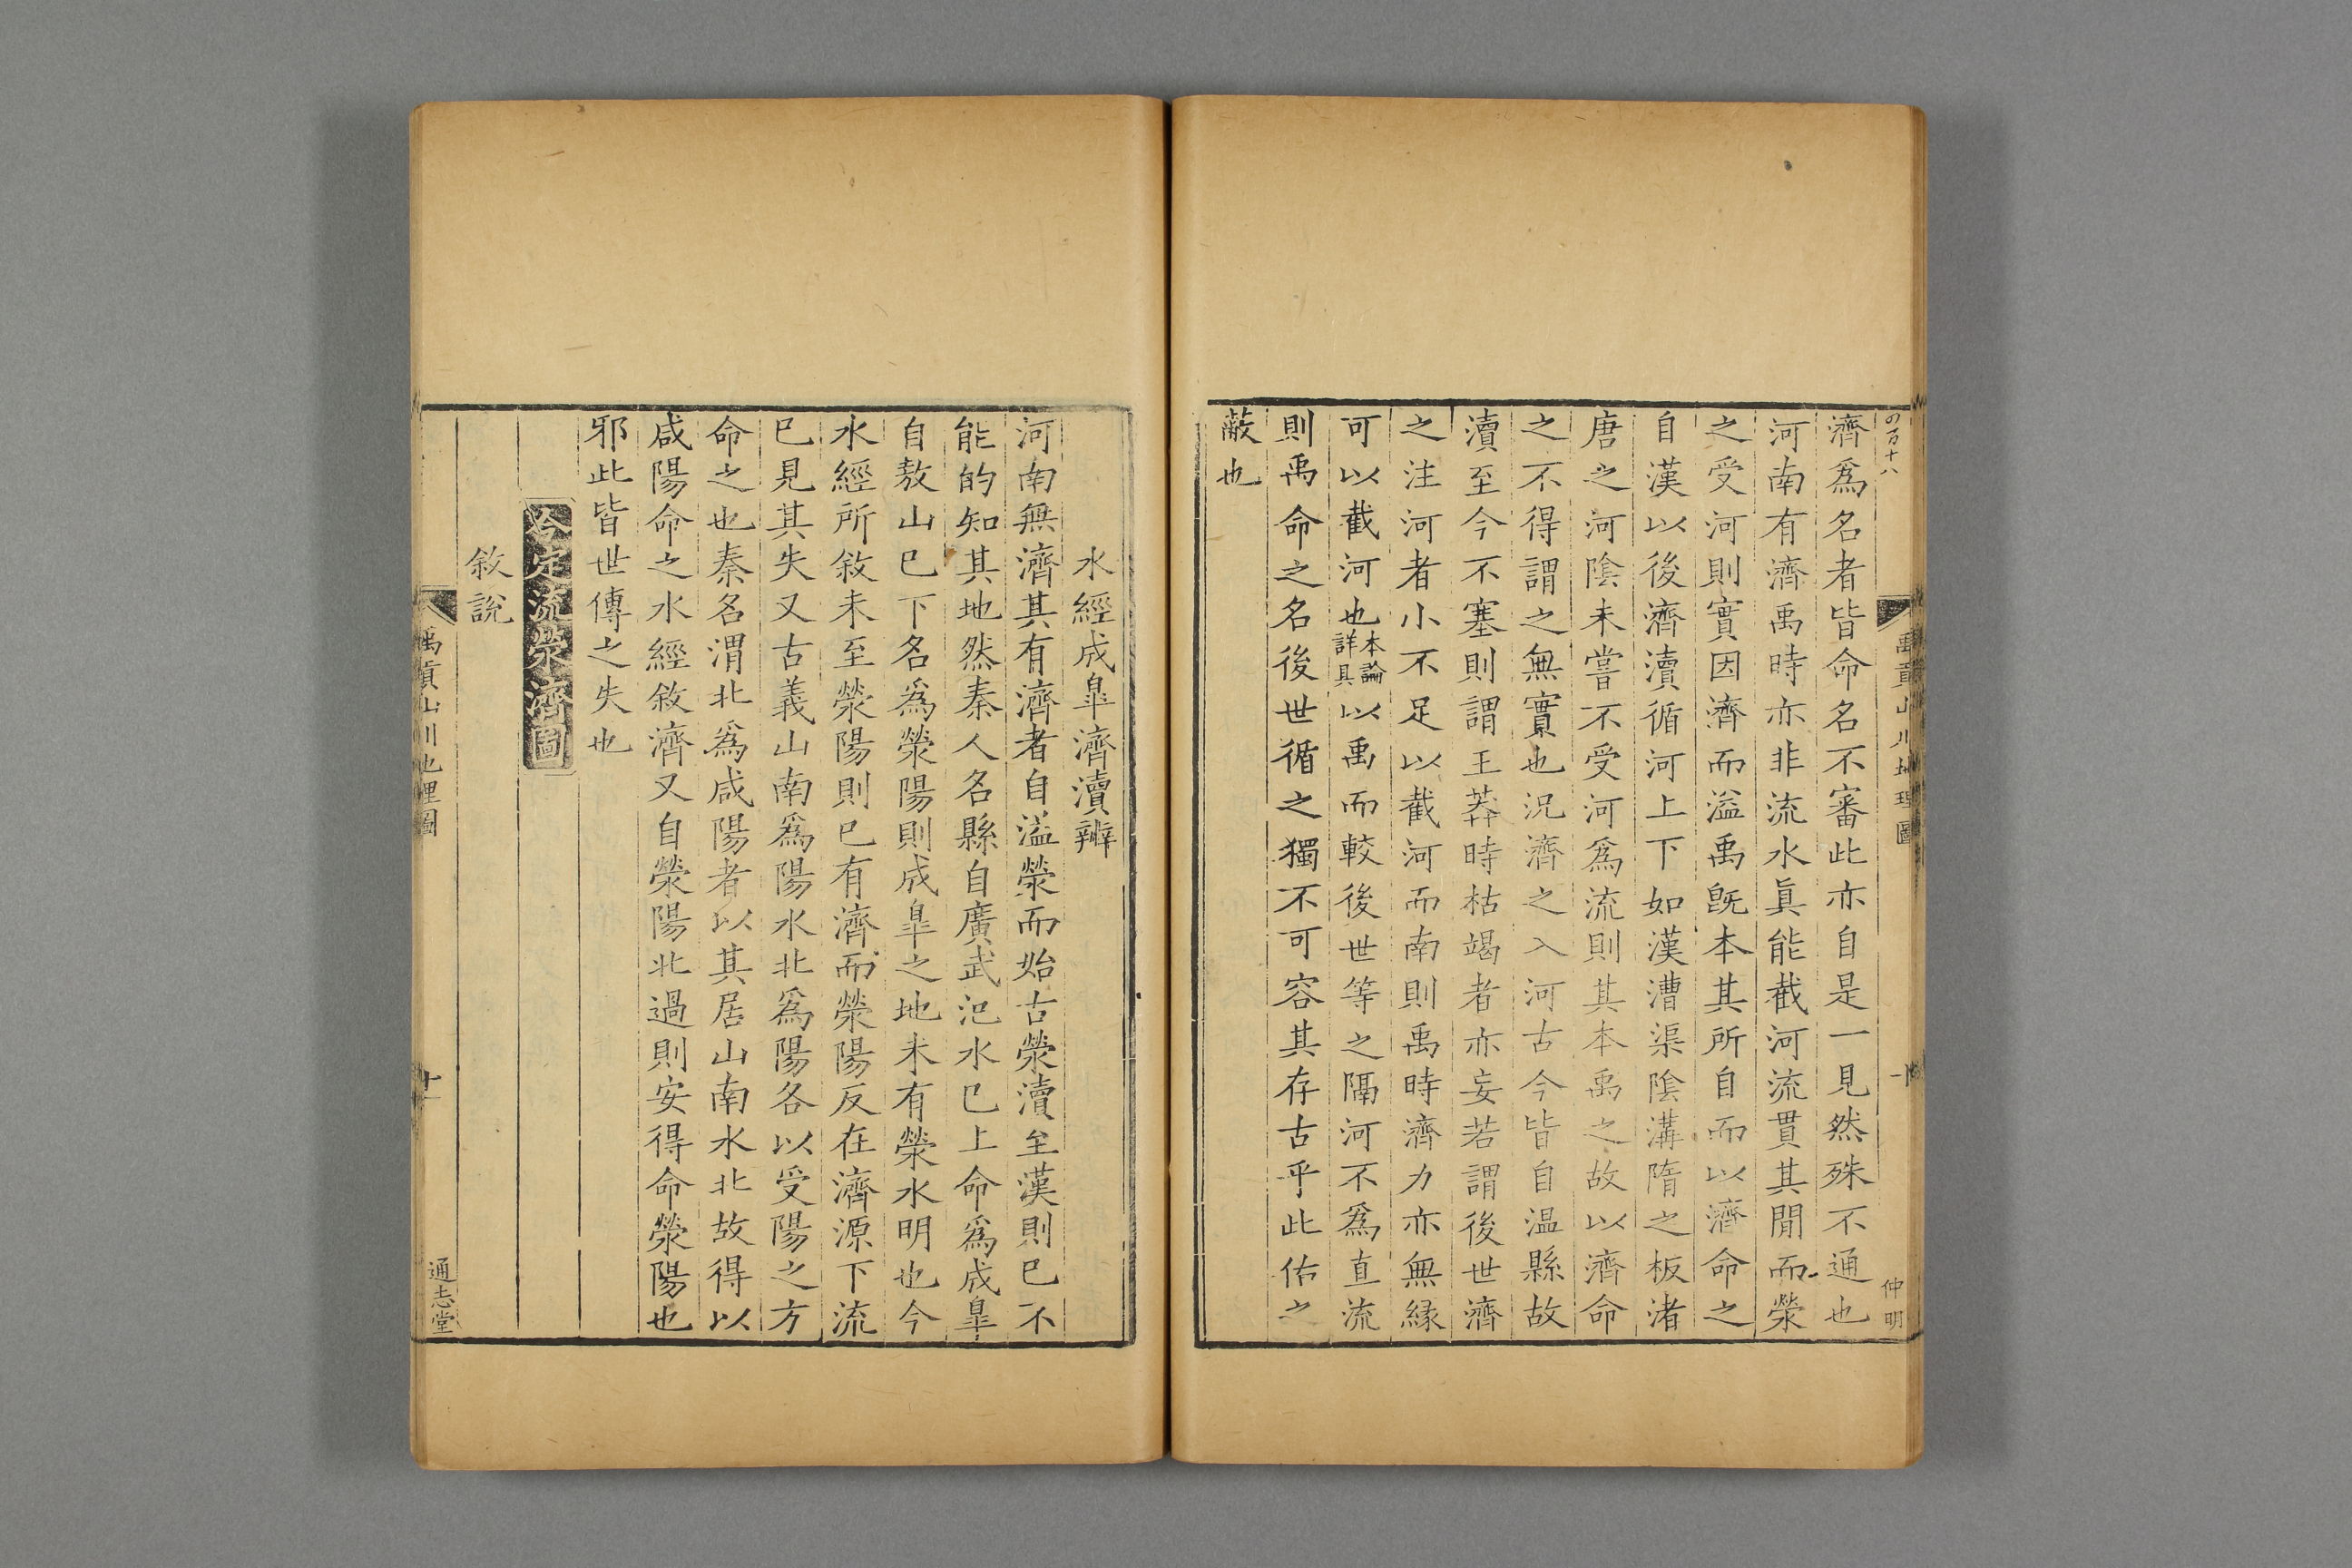 濟爲名者皆命名不審此亦自是一見然殊不通也
河南有濟禹時亦非流水眞能截河流貫其閒而滎
之受河則實因濟而溢禹旣本其所自而以濟命之
自漢以後濟瀆循河上下如漢漕渠陰溝隋之板渚
唐之河陰未嘗不受河爲流則其本禹之故以濟命
之不得謂之無實也況濟之入河古今皆自温縣故
瀆至今不塞則謂王莽時枯竭者亦妄若謂後世濟
之注河者小不足以截河而南則禹時濟力亦無縁
可以截河也本論詳具以禹而較後世等之隔河不爲直流
則禹命之名後世循之獨不可容其存古乎此佑之
蔽也
禹貢山川地理圖
仲明
水經成臯濟瀆辨
河南無濟其有濟者自溢滎而始古滎瀆至漢則巳不
能的知其地然秦人名縣自廣武汜水巳上命爲成臯
自敖山巳下名爲滎陽則成臯之地未有滎水明也今
水經所敘未至滎陽則巳有濟而滎陽反在濟源下流
巳見其失又古義山南爲陽水北爲陽各以受陽之方
命之也秦名渭北爲咸陽者以其居山南水北故得以
咸陽命之水經敘濟又自滎陽北過則安得命滎陽也
邪此皆世傳之失也
今定流滎濟圖
敘說
禹貢山川地理圖
十一
通志堂